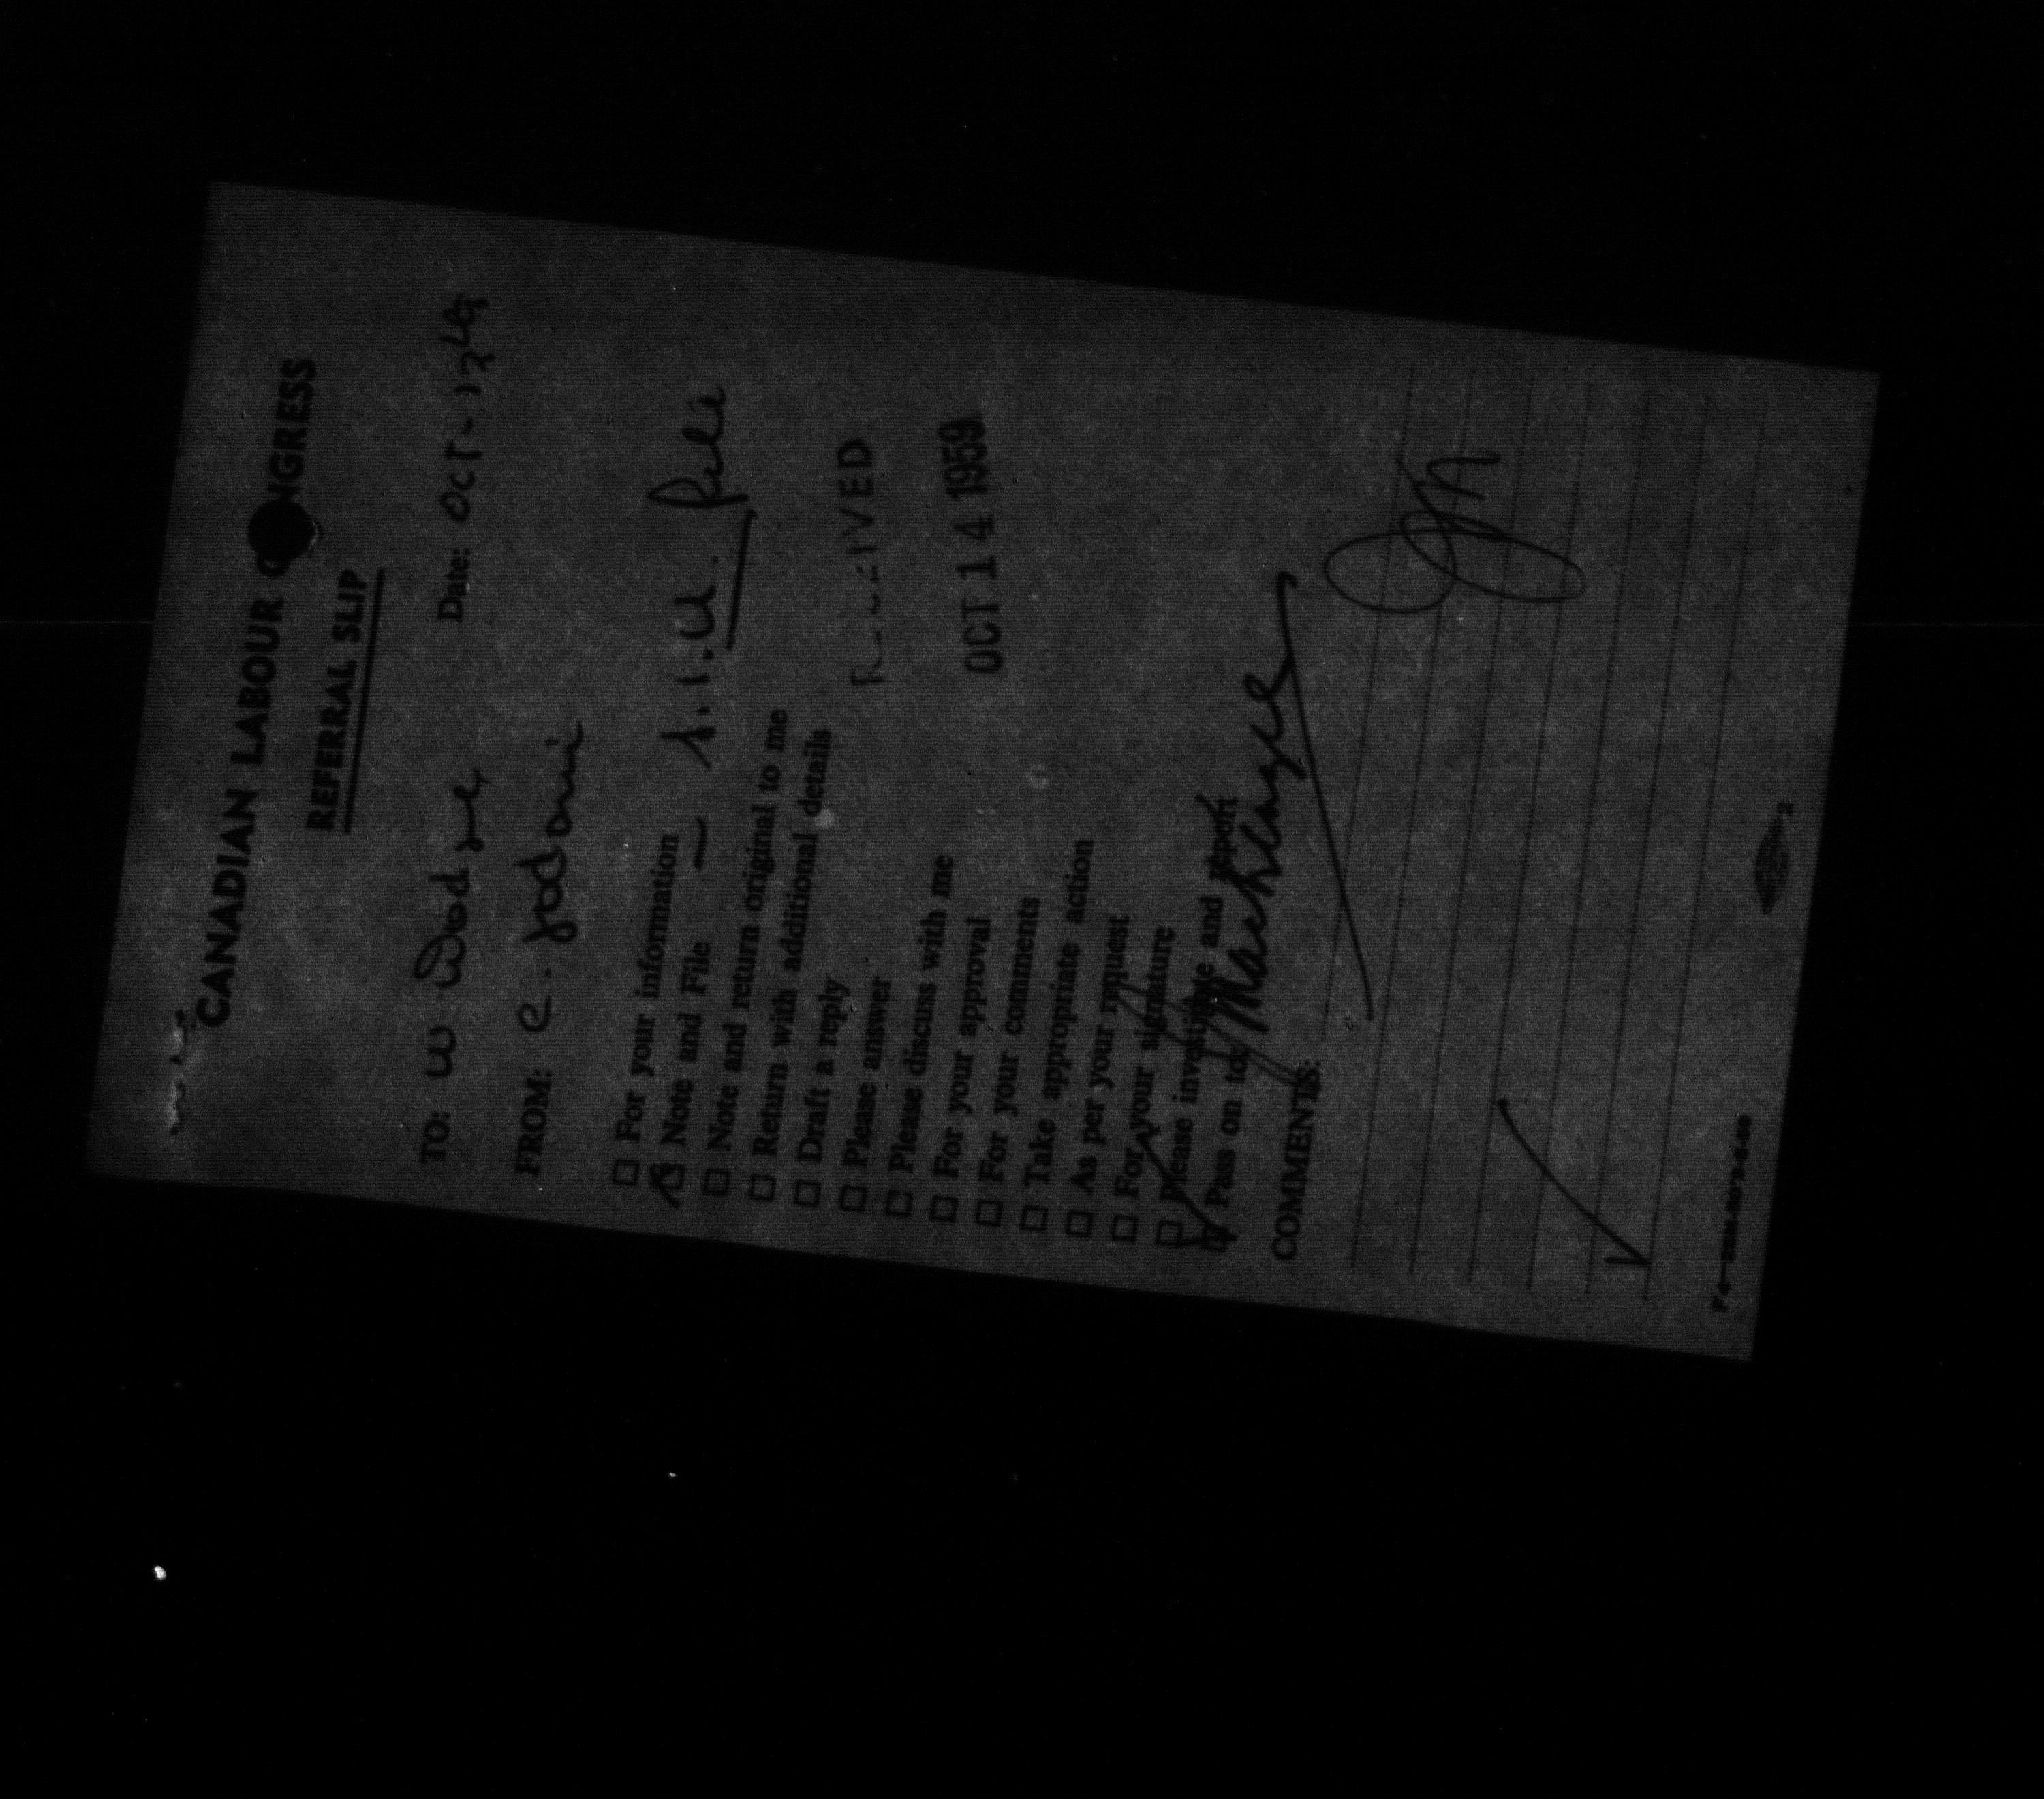 CANADIAN LABOUR CONGRESS
REFERRAL SLIP
Date: OCT-13
TO: W Dodge
FROM: e. Jodoin
For your information
Note and File — S.I.U. file
Note and return original to me
Return with additional details
Draft a reply
RECEIVED
Please answer
Please discuss with me
OCT 14 1959
For your approval
For your comments
Take appropriate action
As per your request
For your signature
Please investigate and report
Pass on to: MacKenzie
COMMENTS:
2